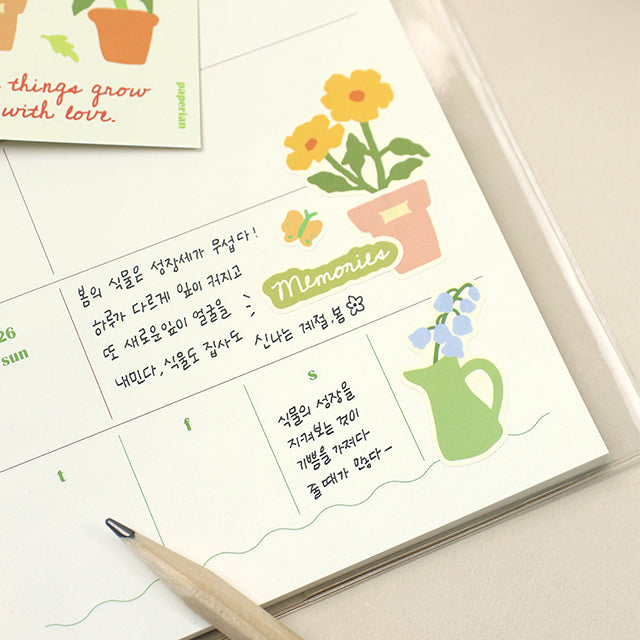 things grow
with love.
paperian
Memories
봄의 식물은 성장세가 무섭다!
하루가 다르게 잎이 커지고
또 새로운잎이 얼굴을
내민다, 식물도 집사도 신나는 계절, 봄
26
sun
s
식물의 성장을
지켜보는 것이
기쁨을 가져다
줄 때가 많다~
f
t